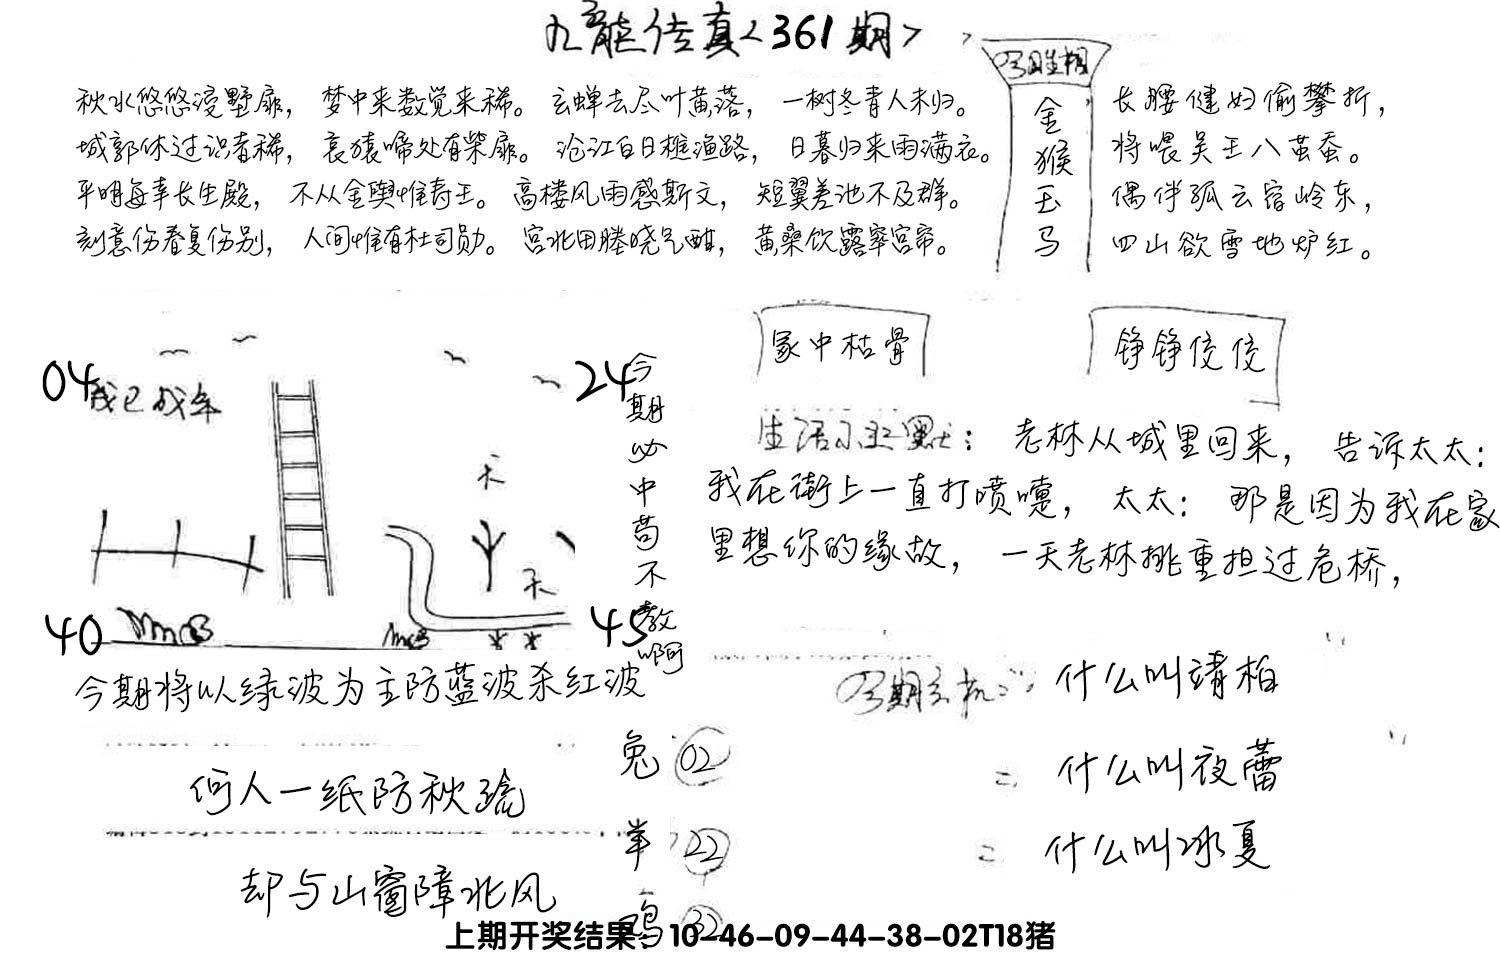 九龙传真<361期>
秋水悠悠浸墅扉，梦中来数觉来稀。玄蝉去尽叶黄落，一树冬青人未归。
城郭休过识者稀，哀猿啼处有柴扉。沧江白日樵渔路，日暮归来雨满衣。
平明每幸长生殿，不从金舆惟寿王。高楼风雨感斯文，短翼差池不及群。
刻意伤春复伤别，人间惟有杜司勋。宫北田塍晓气酣，黄桑饮露窣宫帘。
今期生相
金
猴
玉
马
长腰健妇偷攀折，
将喂吴王八茧蚕。
偶伴孤云宿岭东，
四山欲雪地炉红。
04
我已成年
24
40
45
今期必中苟不教啊
天
天
今期将以绿波为主防蓝波杀红波
何人一纸防秋疏
却与山窗障北风
冢中枯骨
铮铮佼佼
生活小幽默：老林从城里回来，告诉太太：
我在街上一直打喷嚏，太太：那是因为我在家
里想你的缘故，一天老林挑重担过危桥，
今期玄机：什么叫靖柏
二 什么叫夜蕾
二 什么叫冰夏
兔 02
羊 22
鸡 32
上期开奖结果：10-46-09-44-38-02T18猪